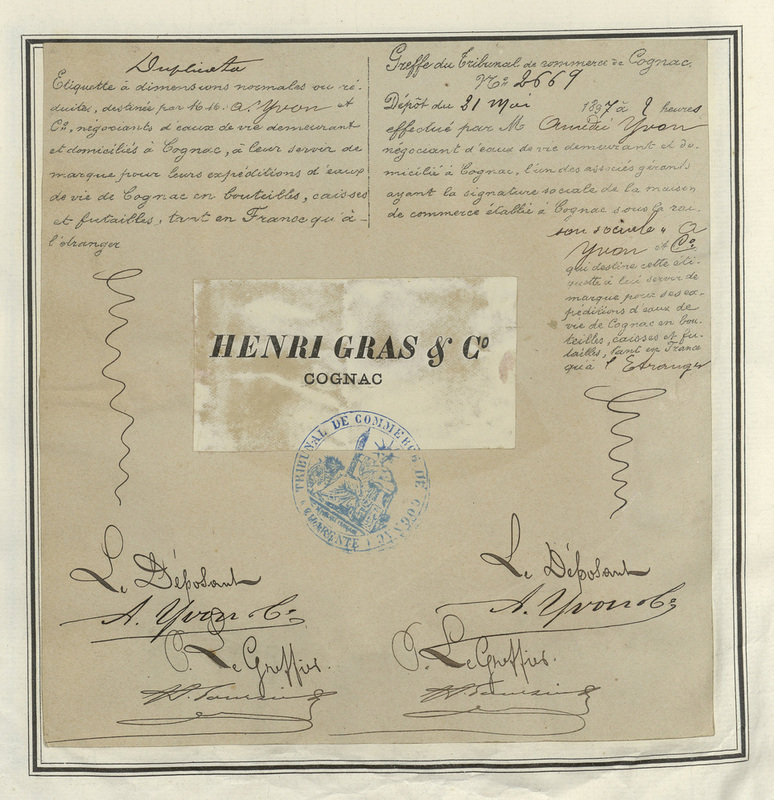 Duplicata
Etiquette à dimensions normales ou ré-
duites, destinée par M.M. A. Yvon et
Cº, négociants d'eaux de vie demeurant
et domiciliés à Cognac, à leur servir de
marque pour leurs expéditions d'eaux
de vie de Cognac en bouteilles, caisses
et futailles, tant en France qu'à
l'étranger
Greffe du Tribunal de commerce de Cognac.
Nº 2669
Dépôt du 21 Mai 1897 à heures
effectué par M Amédée Yvon
négociant d'eaux de vie demeurant et do-
micilié à Cognac, l'un des associés gérants
ayant la signature sociale de la maison
de commerce établie à Cognac sous la rai-
son sociale " A
Yvon et Cº
qui destine cette éti-
quette à lui servir de
marque pour ses ex-
péditions d'eaux de
vie de Cognac en bou-
teilles, caisses et fu-
tailles, tant en France
qu'à l'Etranger
HENRI GRAS & Cº
COGNAC
TRIBUNAL DE COMMERCE DE COGNAC
CHARENTE
Le Déposant
A. Yvon & Cº
P. Le Greffier.
Le Déposant
A. Yvon & Cº
P. Le Greffier.